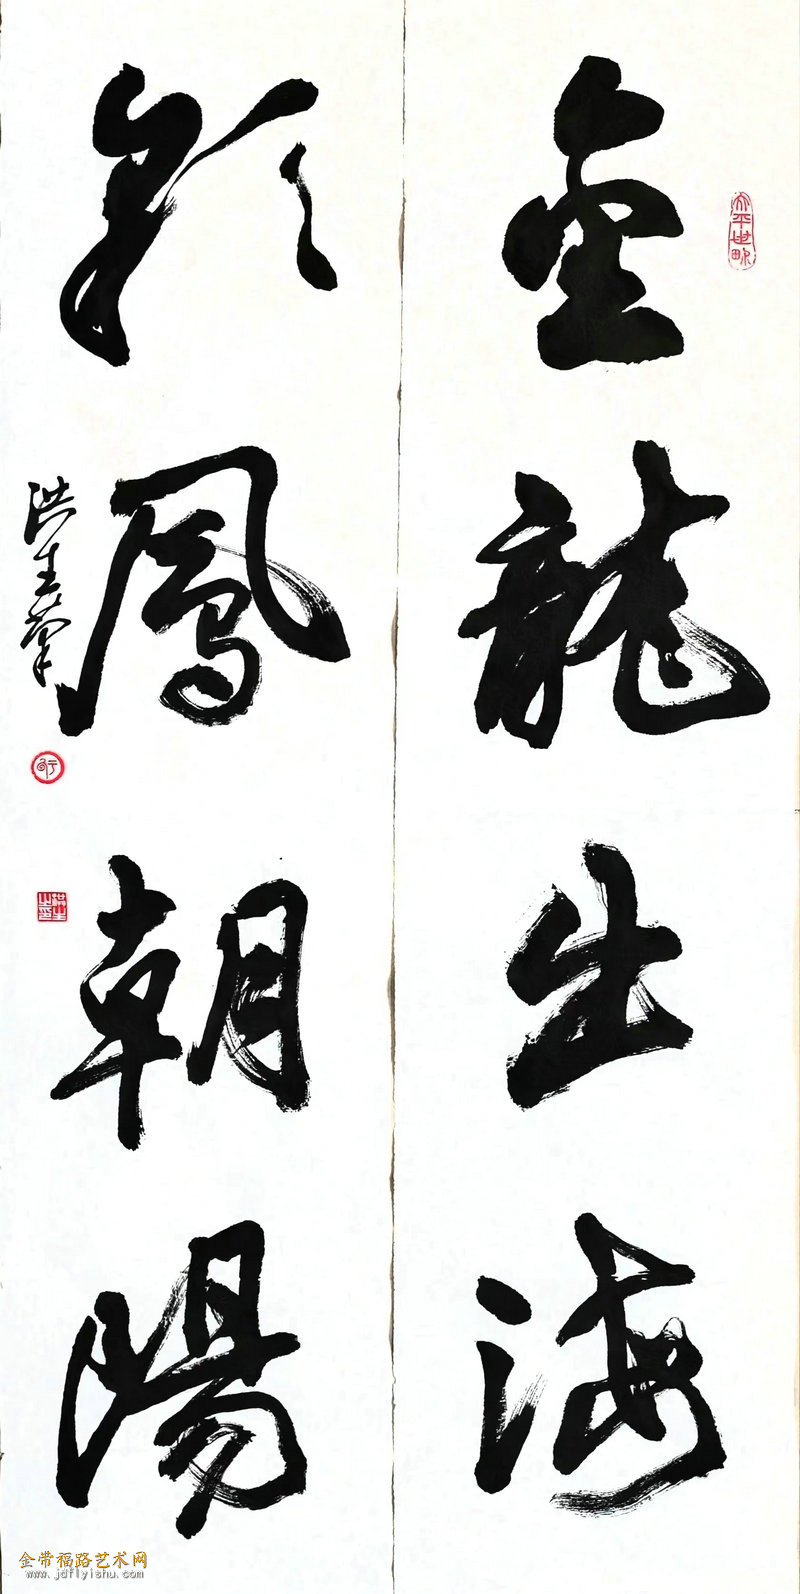 金龍出海
彩鳳朝陽
洪生筆
金带福路艺术网
www.jdflyishu.com